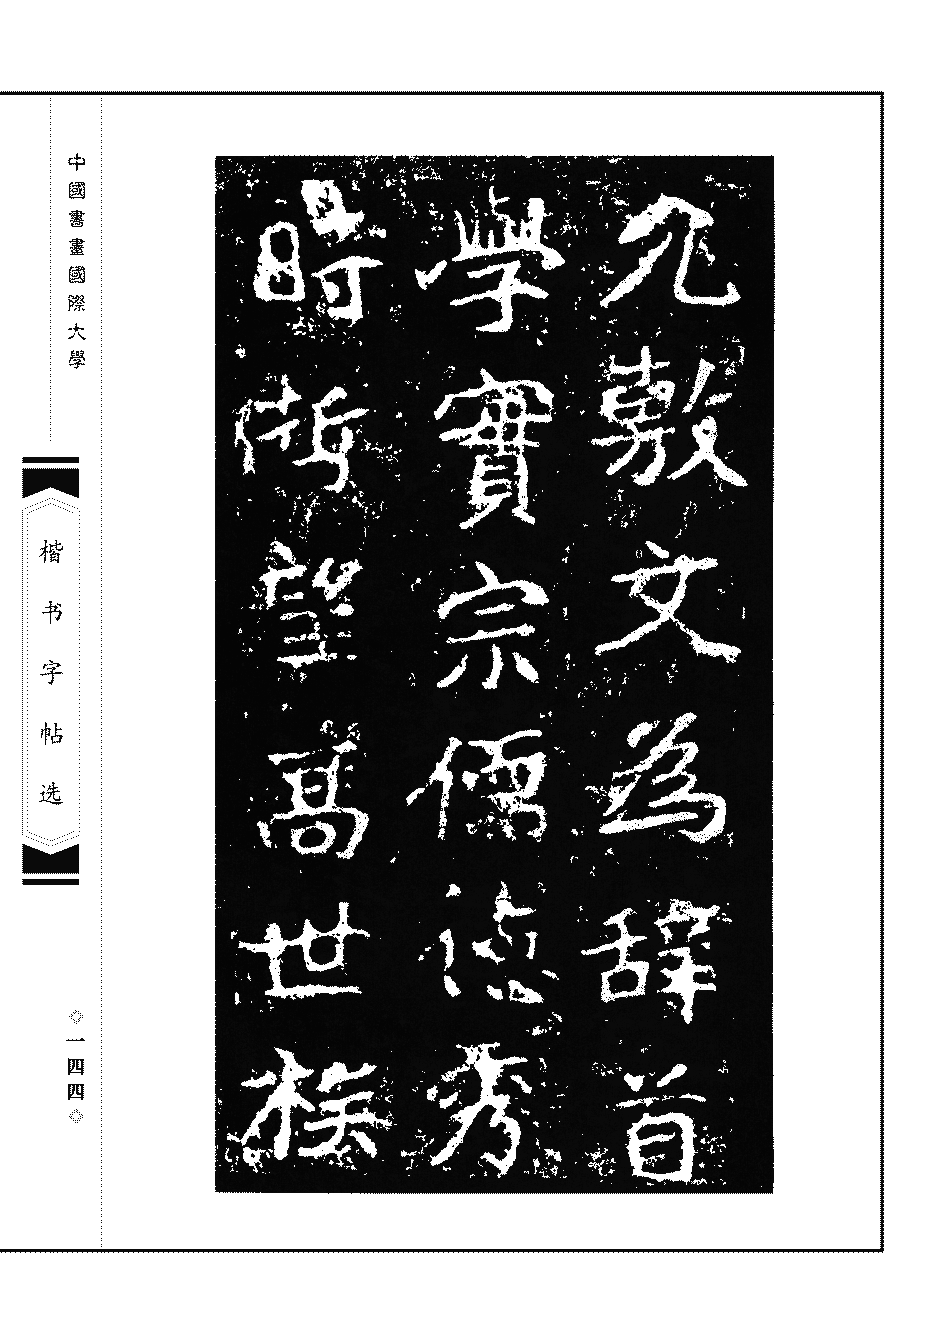 中國書畫國際大學
楷书字帖选
一四四
允敷文為辭首
學實宗儒德秀
時哲望高世族